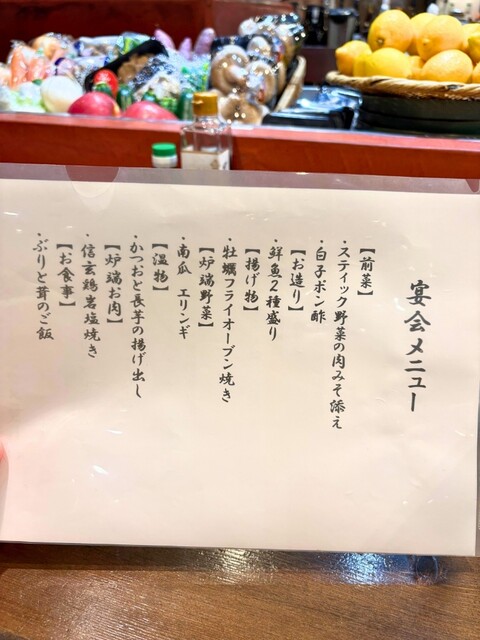 宴会メニュー
【前菜】
・スティック野菜の肉みそ添え
・白子ポン酢
【お造り】
・鮮魚２種盛り
【揚げ物】
・牡蠣フライオーブン焼き
【炉端野菜】
・南瓜 エリンギ
【温物】
・かつおと長芋の揚げ出し
【炉端お肉】
・信玄鶏岩塩焼き
【お食事】
・ぶりと茸のご飯